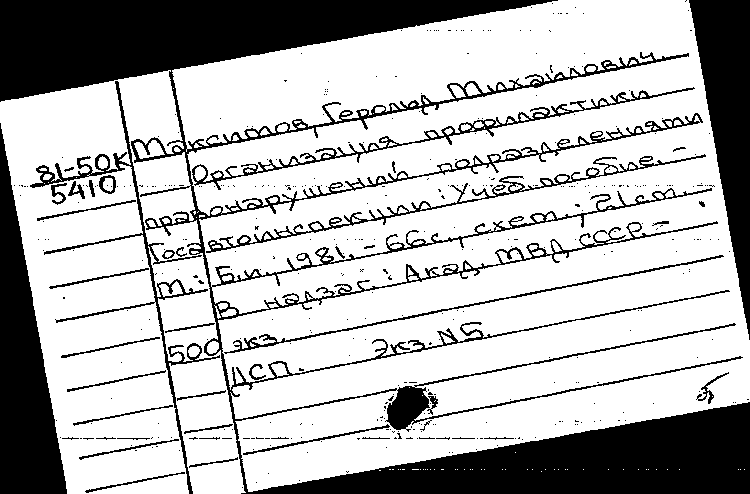 81-50К
5410
Максимов, Герольд Михайлович.
Организация профилактики
правонарушений подразделениями
Госавтоинспекции: Учеб. пособие. -
М.: Б.и., 1981. - 66с., схем.; 21см. -
В надзаг.: Акад. МВД СССР. -
500 экз.
ДСП. Экз. N5.